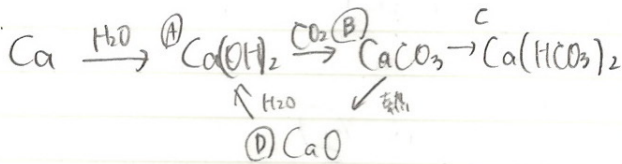 Ca H₂O → Ⓐ Ca(OH)₂ CO₂ → Ⓑ CaCO₃ → C Ca(HCO₃)₂
↖ H₂O ↙
Ⓓ CaO